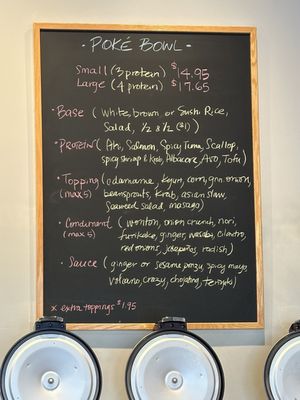 - POKÉ BOWL -
Small (3 protein) $14.95
Large (4 protein) $17.65
• Base ( White, brown or Sushi Rice,
Salad, 1/2 & 1/2 ($1))
• PROTEIN ( Ahi, Salmon, Spicy Tuna, Scallop,
spicy shrimp & Krab, Albacore, Avo, Tofu)
• Topping (edamame, Kyuri, corn, grn onion,
(max 5) beansprouts, Krab, asian slaw,
Seaweed Salad, masago)
• Condiment ( wonton, onion crunch, nori,
(max 5) furikake, ginger, wasabi, cilantro,
red onions, jalapeños, radish)
• Sauce ( ginger or sesame ponzu, spicy mayo,
volcano, crazy, teriyaki)
* extra toppings $1.95